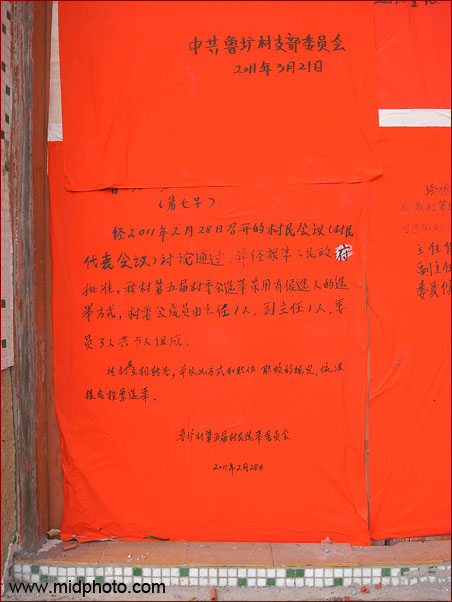 中共鲁圿村支部委员会
2011年3月21日
(第七号)
经2011年2月28日召开的村民会议(村民
代表会议)讨论通过,并经 人民政府
批准,我村第五届村委会选举采用有候选人的选
举方式,村委会成员由主任1人,副主任1人,委
员3人共5人组成。
,并以此方式和职位、职数的规定,依法
提名投票选举。
鲁圿村第五届村民选举委员会
2011年2月28日
主任
副主任
委员候
www.midphoto.com